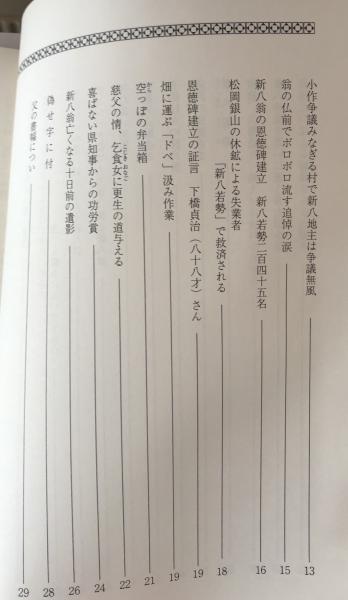 小作争議みなぎる村で新八地主は争議無風 13
翁の仏前でボロボロ流す追悼の涙 15
新八翁の恩徳碑建立 新八若勢二百四十五名 16
松岡銀山の休鉱による失業者
「新八若勢」で救済される 18
恩徳碑建立の証言 下橋貞治(八十八才)さん 19
畑に運ぶ「ドベ」汲み作業 19
空っぽの弁当箱 21
慈父の情、乞食女に更生の道与える 22
喜ばない県知事からの功労賞 24
新八翁亡くなる十日前の遺影 26
偽せ字に付 28
父の書幅につい 29